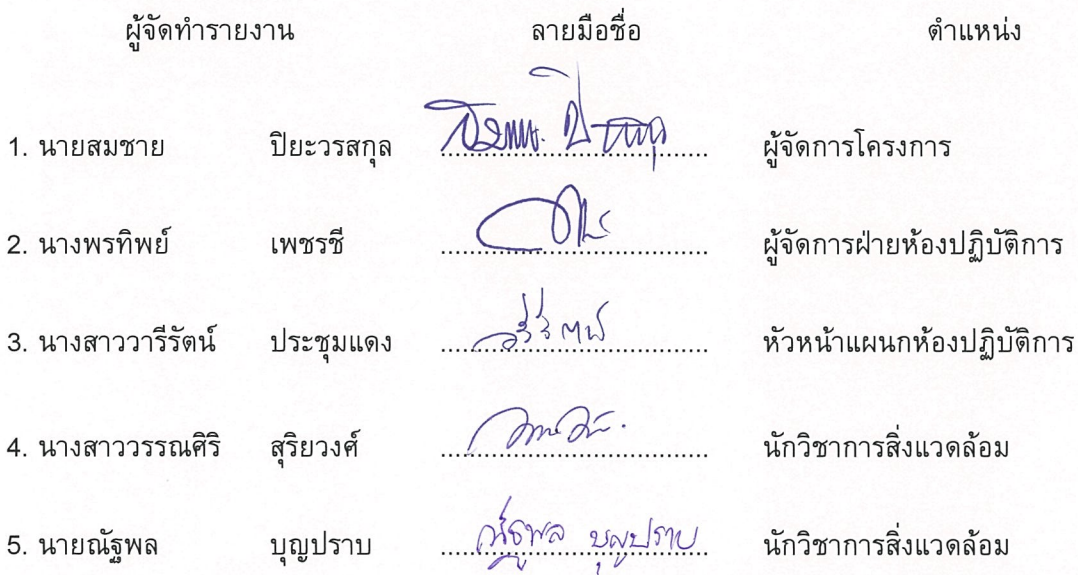 ผู้จัดทำรายงาน ลายมือชื่อ ตำแหน่ง
1. นายสมชาย ปิยะวรสกุล ผู้จัดการโครงการ
2. นางพรทิพย์ เพชรชี ผู้จัดการฝ่ายห้องปฏิบัติการ
3. นางสาววารีรัตน์ ประชุมแดง หัวหน้าแผนกห้องปฏิบัติการ
4. นางสาววรรณศิริ สุริยวงศ์ นักวิชาการสิ่งแวดล้อม
5. นายณัฐพล บุญปราบ ณัฐพล บุญปราบ นักวิชาการสิ่งแวดล้อม